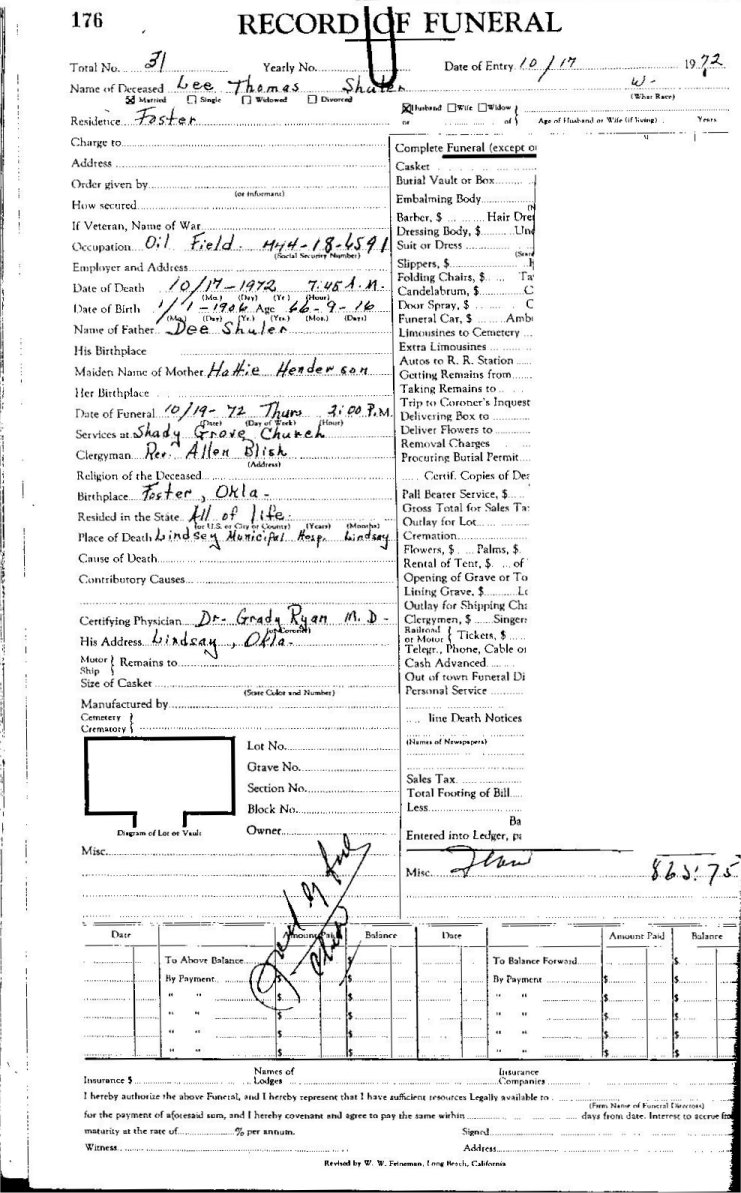 176 RECORD OF FUNERAL
Total No. 31 Yearly No. Date of Entry 10/17 1972
Name of Deceased Lee Thomas Shuler W-
☒ Married ☐ Single ☐ Widowed ☐ Divorced (What Race)
Residence Foster
☒ Husband ☐ Wife ☐ Widow }
or of } Age of Husband or Wife (if living) Years
Charge to
Address
Order given by
(or informant)
How secured
If Veteran, Name of War
Occupation Oil Field. 444-18-6591
(Social Security Number)
Employer and Address
Date of Death 10/17-1972 7:45 A.M.
(Mo.) (Day) (Yr.) (Hour)
Date of Birth 1/1-1906 Age 66-9-16
(Mo.) (Day) (Yr.) (Yrs.) (Mos.) (Days)
Name of Father Dee Shuler
His Birthplace
Maiden Name of Mother Hattie Henderson
Her Birthplace
Date of Funeral 10/19-72 Thurs 2:00 P.M.
(Date) (Day of Week) (Hour)
Services at Shady Grove Church
Clergyman Rev. Allen Blish
(Address)
Religion of the Deceased
Birthplace Foster, Okla-
Resided in the State All of life.
(or U.S. or City or County) (Years) (Months)
Place of Death Lindsey Municipal Hosp. Lindsay
Cause of Death
Contributory Causes
Certifying Physician Dr- Grady Ryan M.D-
(or Coroner)
His Address Lindsay, Okla-
Motor }
Ship } Remains to
Size of Casket
(State Color and Number)
Manufactured by
Cemetery }
Crematory }
Lot No.
Grave No.
Section No.
Block No.
Owner
Diagram of Lot or Vault
Misc.
Complete Funeral (except ou
Casket
Burial Vault or Box
Embalming Body
Barber, $ Hair Dre
Dressing Body, $ Und
Suit or Dress
Slippers, $
Folding Chairs, $ Ta
Candelabrum, $ C
Door Spray, $ C
Funeral Car, $ Amb
Limousines to Cemetery
Extra Limousines
Autos to R. R. Station
Getting Remains from
Taking Remains to
Trip to Coroner's Inquest
Delivering Box to
Deliver Flowers to
Removal Charges
Procuring Burial Permit
Certif. Copies of De
Pall Bearer Service, $
Gross Total for Sales Ta
Outlay for Lot
Cremation
Flowers, $ Palms, $
Rental of Tent, $ of
Opening of Grave or To
Lining Grave, $ Lo
Outlay for Shipping Ch
Clergymen, $ Singer
Railroad
or Motor { Tickets, $
Telegr., Phone, Cable or
Cash Advanced
Out of town Funeral Di
Personal Service
line Death Notices
(Names of Newspapers)
Sales Tax
Total Footing of Bill
Less
Ba
Entered into Ledger, pa
Misc. 865.75
Date Amount Paid Balance Date Amount Paid Balance
To Above Balance To Balance Forward $
By Payment $ $ By Payment $ $
" " $ $ " " $ $
" " $ $ " " $ $
" " $ $ " " $ $
" " $ $ " " $ $
Insurance $ Names of Lodges Insurance Companies
I hereby authorize the above Funeral, and I hereby represent that I have sufficient resources Legally available to
(Firm Name of Funeral Directors)
for the payment of aforesaid sum, and I hereby covenant and agree to pay the same within days from date. Interest to accrue fro
maturity at the rate of % per annum. Signed
Witness Address
Revised by W. W. Feineman, Long Beach, California